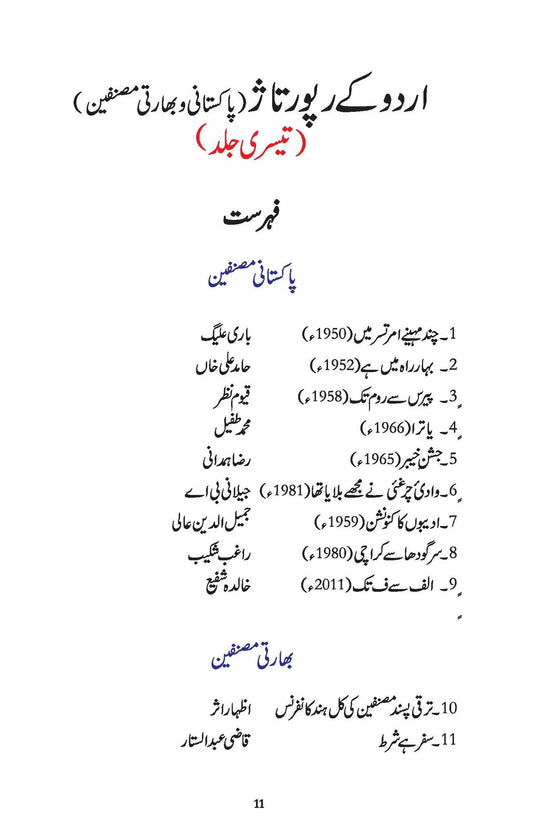 اردو کے رپورتاژ (پاکستانی و بھارتی مصنفین)
(تیسری جلد)
فہرست
پاکستانی مصنفین
1۔ چند مہینے امرتسر میں (1950ء) باری علیگ
2۔ بہار راہ میں ہے (1952ء) حامد علی خاں
3۔ پیرس سے روم تک (1958ء) قیوم نظر
4۔ یاترا (1966ء) محمد طفیل
5۔ جشنِ خیبر (1965ء) رضا ہمدانی
6۔ وادیٔ چرغئی نے مجھے بلایا تھا (1981ء) جیلانی بی اے
7۔ ادیبوں کا کنونشن (1959ء) جمیل الدین عالی
8۔ سرگودھا سے کراچی (1980ء) راغب شکیب
9۔ الف سے ف تک (2011ء) خالدہ شفیع
بھارتی مصنفین
10۔ ترقی پسند مصنفین کی کل ہند کانفرنس اظہار اثر
11۔ سفر ہے شرط قاضی عبدالستار
11